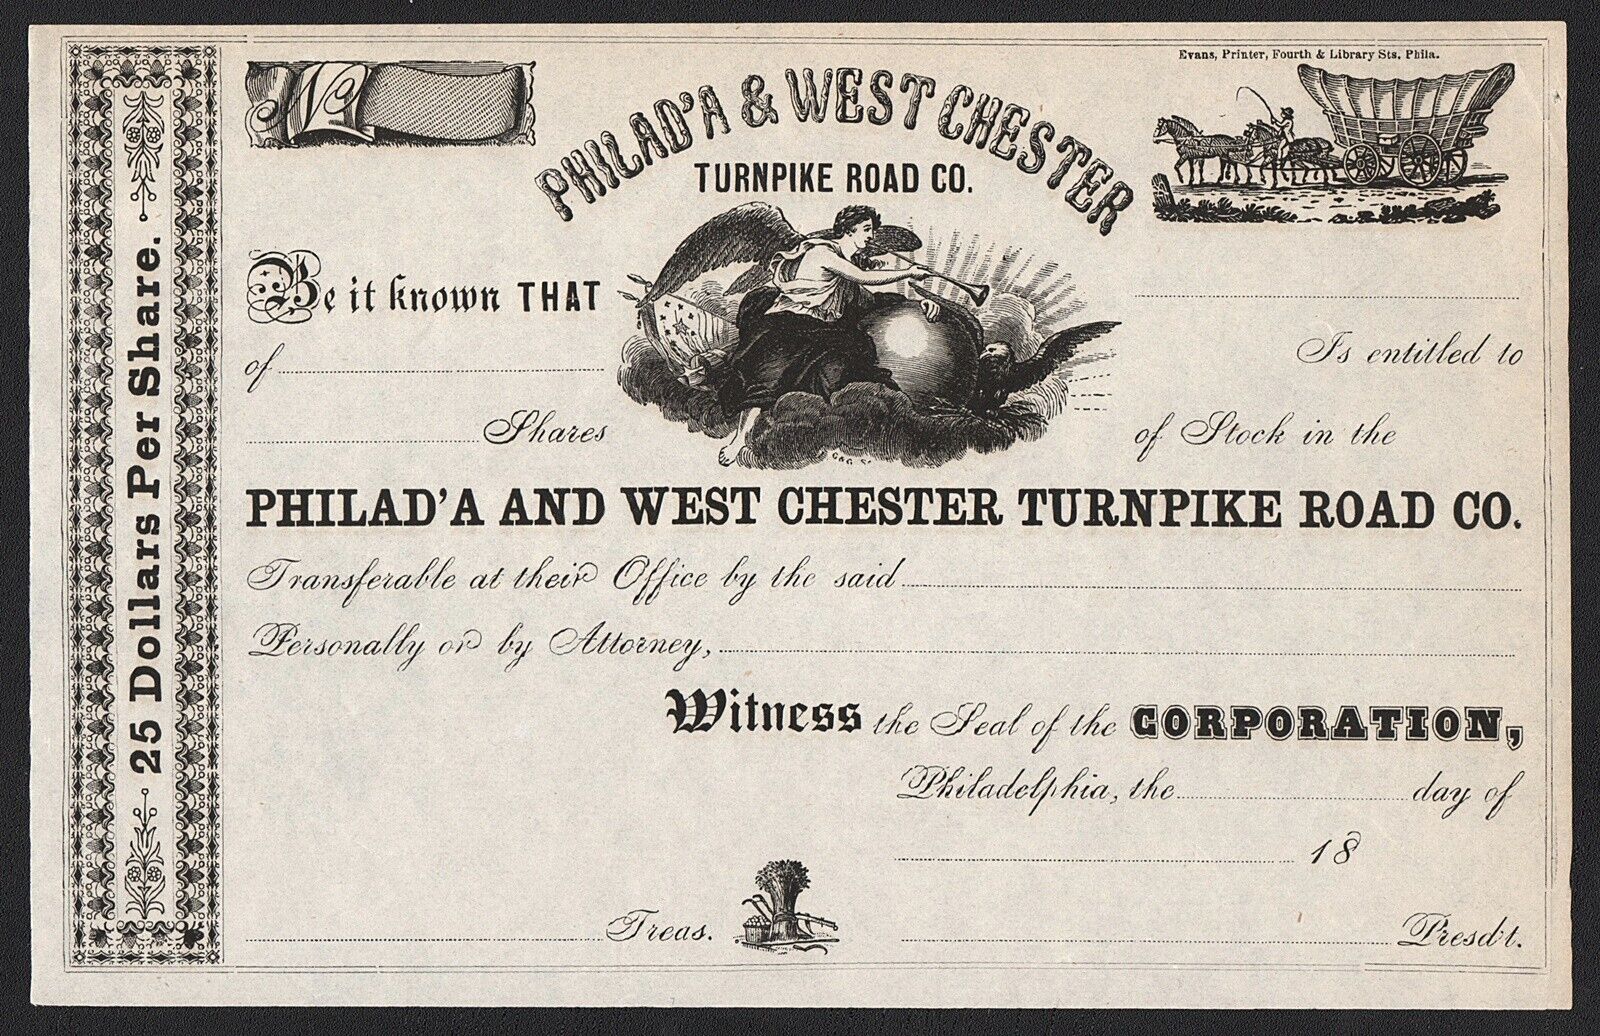 Evans, Printer, Fourth & Library Sts. Phila.
No
PHILAD'A & WEST CHESTER
TURNPIKE ROAD CO.
Be it known THAT
of
Is entitled to
Shares
of Stock in the
PHILAD'A AND WEST CHESTER TURNPIKE ROAD CO.
Transferable at their Office by the said
Personally or by Attorney,
Witness the Seal of the CORPORATION,
Philadelphia, the day of
18
Treas.
Presdt.
25 Dollars Per Share.